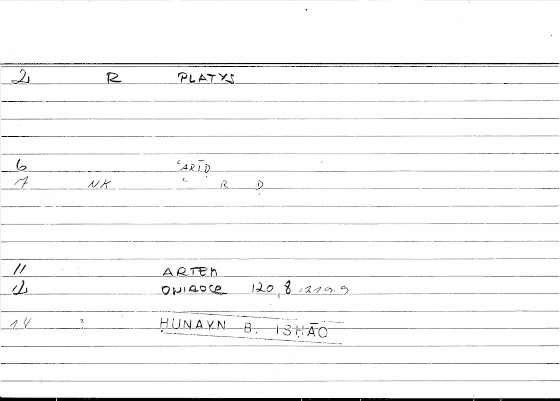 2 R PLATYS
6 ʿARĪḌ
7 NK ʿ R Ḍ
11 ARTEM
12 ONIROCR 120,8 = 219.9
14 ḤUNAYN B. ISḤĀQ